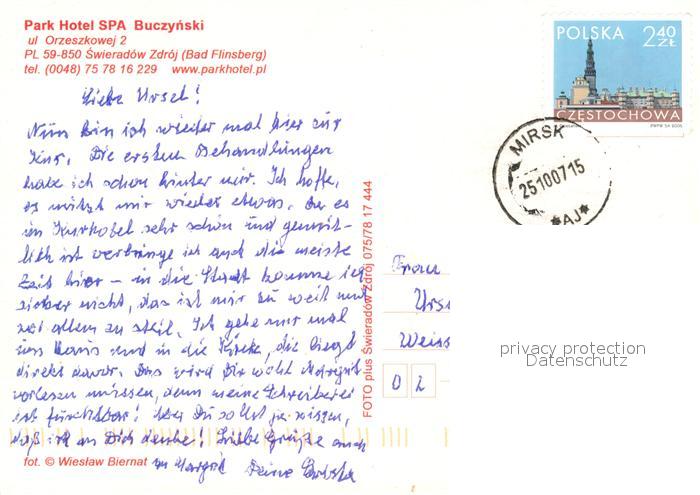 Park Hotel SPA Buczyński
ul Orzeszkowej 2
PL 59-850 Świeradów Zdrój (Bad Flinsberg)
tel. (0048) 75 78 16 229 www.parkhotel.pl
POLSKA 2,40 ZŁ
CZĘSTOCHOWA
MIRSK
25100715
*AJ*
Liebe Ursel!
Nun bin ich wieder mal hier zur
Kur. Die ersten Behandlungen
habe ich schon hinter mir. Ich hoffe,
es nützt mir wieder etwas. Da es
im Kurhotel sehr schön und gemüt-
lich ist verbringe ich auch die meiste
Zeit hier – in die Stadt komme ich
sicher nicht, das ist mir zu weit und
vor allem zu steil. Ich gehe nur mal
ums Haus und in die Kirche, die liegt
direkt davor. Das wird Dir wohl Margrit
vorlesen müssen, denn meine Schreiberei
ist furchtbar! Aber Du sollst ja wissen,
daß ich an Dich denke! Liebe Grüße auch
an Margrit Deine
FOTO plus Świeradów Zdrój 075/78 17 444
Frau
Urs
Weiss
0 2
privacy protection
Datenschutz
fot. © Wiesław Biernat